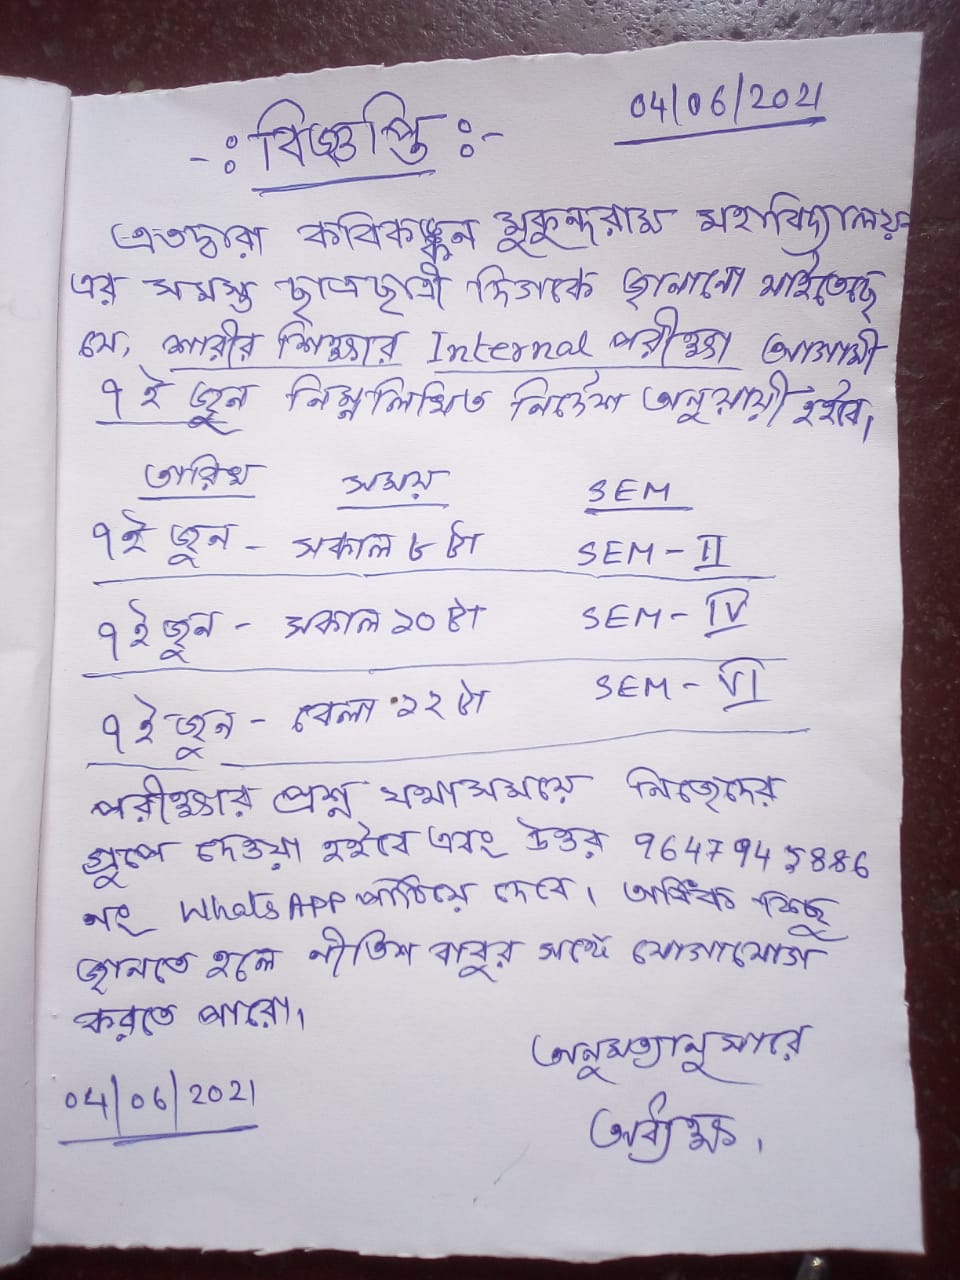 04/06/2021
-ঃ বিজ্ঞপ্তি ঃ-
এতদ্বারা কবিকঙ্কন মুকুন্দরাম মহাবিদ্যালয়
এর সমস্ত ছাত্রছাত্রী দিগকে জানানো যাইতেছে
যে, শারীর শিক্ষার Internal পরীক্ষা আগামী
৭ই জুন নিম্নলিখিত নির্দেশ অনুযায়ী হইবে।
তারিখ সময় SEM
৭ই জুন - সকাল ৮ টা SEM - II
৭ই জুন - সকাল ১০ টা SEM - IV
৭ই জুন - বেলা ১২ টা SEM - VI
পরীক্ষার প্রশ্ন যথাসময়ে নিজেদের
গ্রুপে দেওয়া হইবে এবং উত্তর 964794 886
নং WhatsAPP পাঠিয়ে দেবে। অধিক কিছু
জানতে হলে নীতিশ বাবুর সঙ্গে যোগাযোগ
করতে পারো।
অনুমত্যানুসারে
04/06/2021
অধ্যক্ষ।